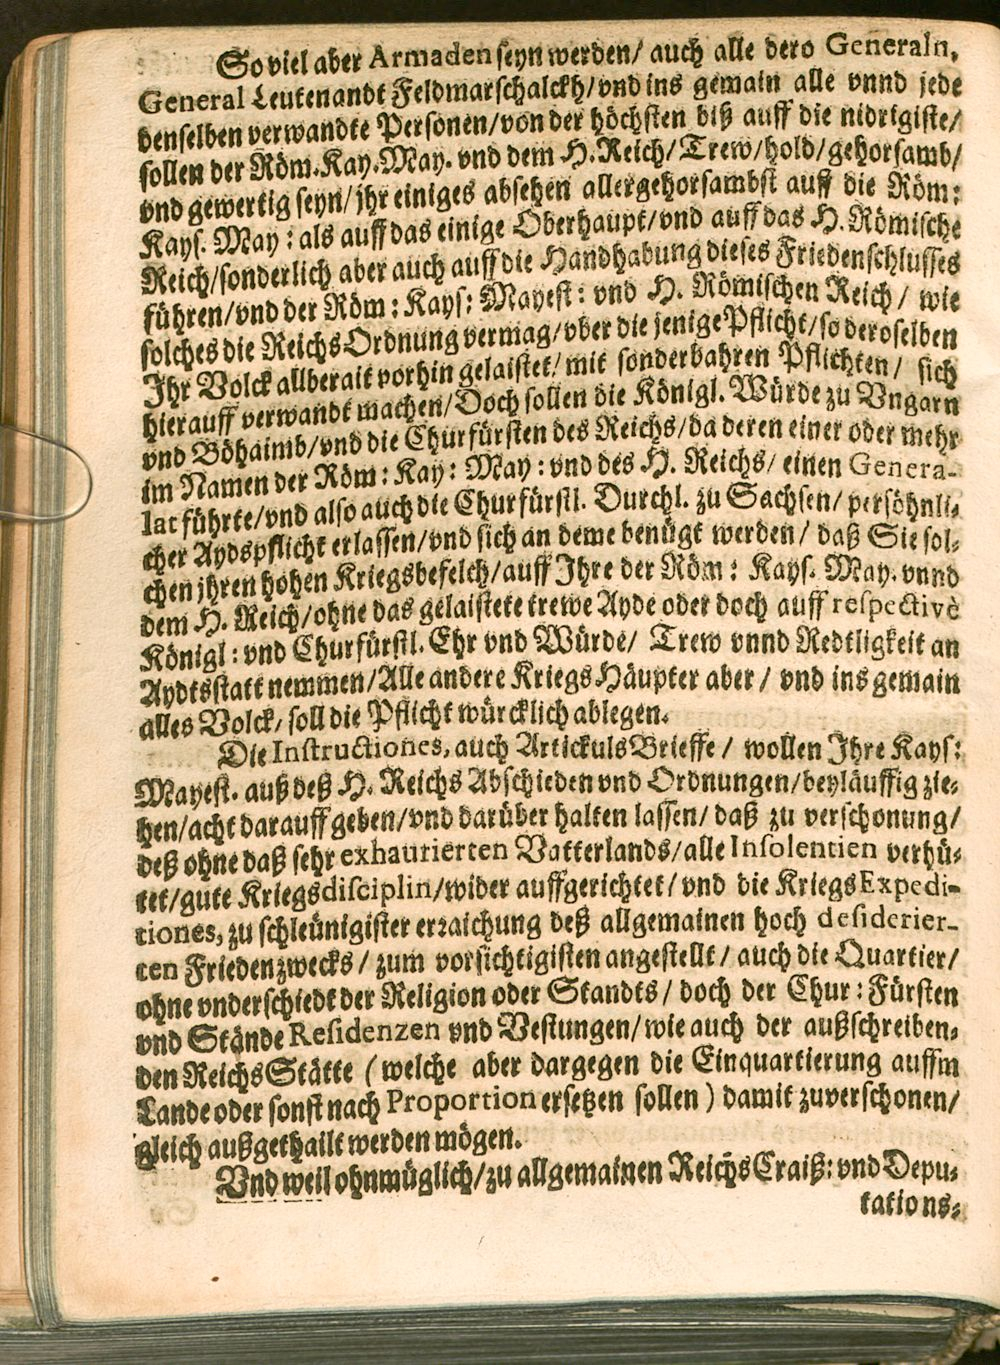 So viel aber Armaden seyn werden/ auch alle dero Generaln,
General Leutenandt Feldmarschalckh/vnd ins gemain alle vnnd jede
denselben verwandte Personen/von der höchsten biß auff die nidrigiste/
sollen der Röm. Kay. May. vnd dem H. Reich/Trew/hold/gehorsamb/
vnd gewertig seyn/jhr einiges absehen allergehorsambst auff die Röm:
Kays. May: als auff das einige Oberhaupt/vnd auff das H. Römische
Reich/sonderlich aber auch auff die Handhabung dieses Friedenschlusses
führen/vnd der Röm: Kays: Mayest: vnd H. Römischen Reich/ wie
solches die ReichsOrdnung vermag/vber die jenige Pflicht/so deroselben
Ihr Volck allberait vorhin gelaistet/mit sonderbahren Pflichten/ sich
hierauff verwandt machen/Doch sollen die Königl. Würde zu Vngarn
vnd Böhaimb/vnd die Churfürsten des Reichs/da deren einer oder mehr
im Namen der Röm: Kay: May: vnd des H. Reichs/ einen Genera-
lat führte/vnd also auch die Churfürstl. Durchl. zu Sachsen/ persöhnli-
cher Aydspflicht erlassen/vnd sich an deme benügt werden/ daß Sie sol-
chen jhren hohen Kriegsbefelch/auff Ihre der Röm: Kays. May. vnnd
dem H. Reich/ohne das gelaistete trewe Ayde oder doch auff respectivè
Königl: vnd Churfürstl. Ehr vnd Würde/ Trew vnnd Redtligkeit an
Aydtsstatt nemmen/Alle andere KriegsHäupter aber/ vnd ins gemain
alles Volck/ soll die Pflicht würcklich ablegen.
Die Instructiones, auch ArtickulsBrieffe/ wollen Ihre Kays:
Mayest. auß deß H. Reichs Abschieden vnd Ordnungen/beyläuffig zie-
hen/acht darauff geben/vnd darüber halten lassen/ daß zu verschonung/
deß ohne daß sehr exhaurierten Vatterlands/alle Insolentien verhü-
tet/gute Kriegsdisciplin/wider auffgerichtet/ vnd die KriegsExpedi-
tiones, zu schleünigister erraichung deß allgemainen hoch desiderier-
ten Friedenzwecks/ zum vorsichtigisten angestellt/ auch die Quartier/
ohne vnderschiedt der Religion oder Standts/ doch der Chur: Fürsten
vnd Stände Residenzen vnd Vestungen/wie auch der außschreiben-
den ReichsStätte (welche aber dargegen die Einquartierung auffm
Lande oder sonst nach Proportion ersetzen sollen) damit zuverschonen/
gleich außgethailt werden mögen.
Vnd weil ohnmüglich/zu allgemainen ReichsCraiß: vnd Depu-
tations-